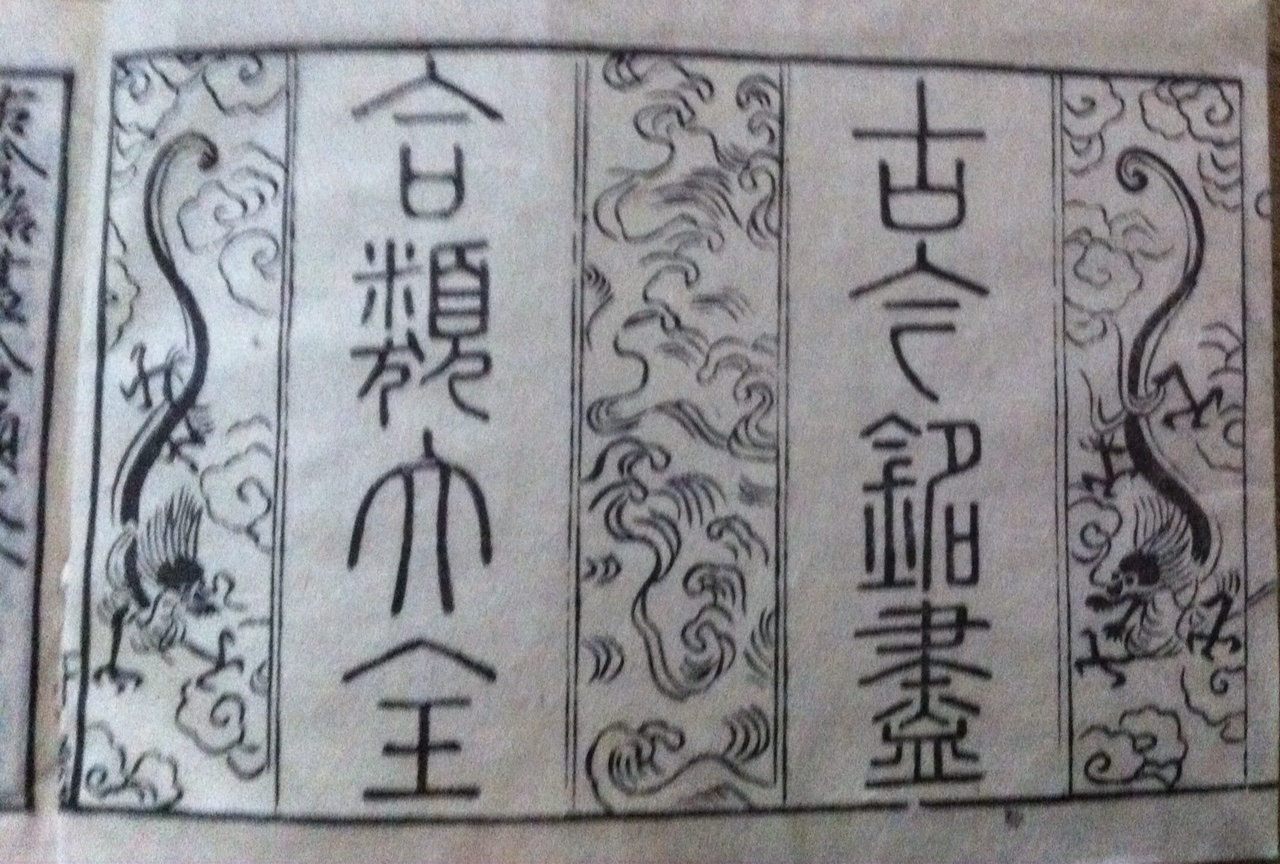 古今銘盡
合類大全